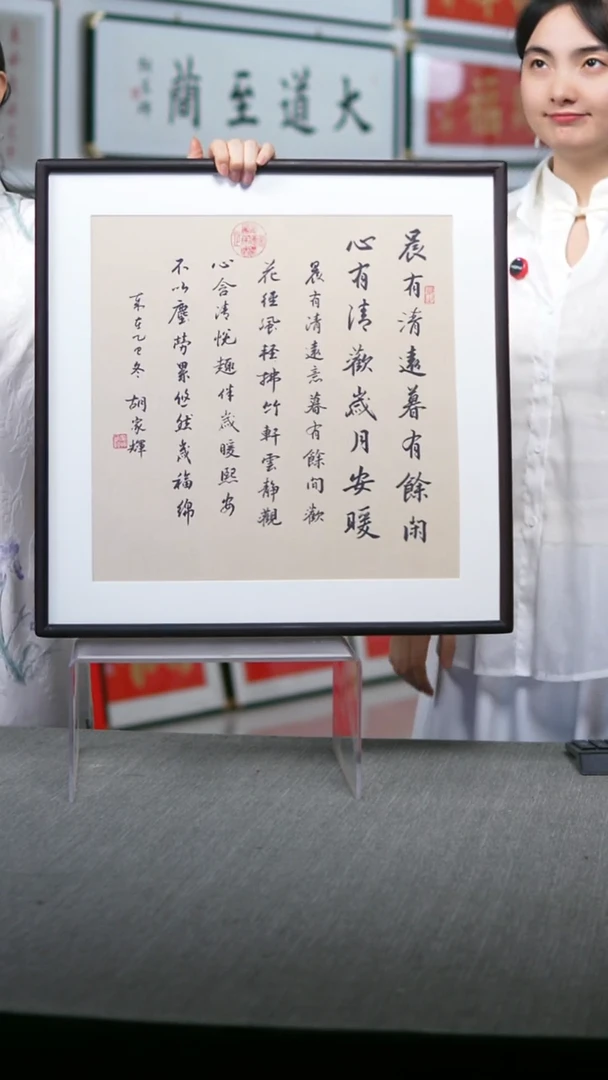 大道至簡
福
晨有清遠暮有餘閑
心有清歡歲月安暖
晨有清遠意暮有餘間歡
花徑風輕拂竹軒雲靜觀
心含清悅趣伴歲暖熙安
不以塵勞累悠然歲福綿
乙巳冬 胡家輝